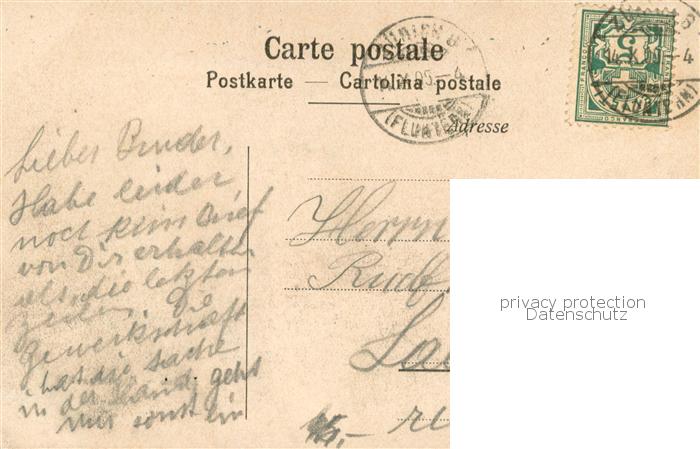 Carte postale
Postkarte — Cartolina postale
Adresse
Lieber Bruder,
Habe leider
noch kein Brief
von Dir erhalten
als die letzten
Zeilen. Die
Gewerkschaft
hat die Sache
in der Hand, geht
nur sonst ein
Herrn
Rud
privacy protection
Datenschutz
5